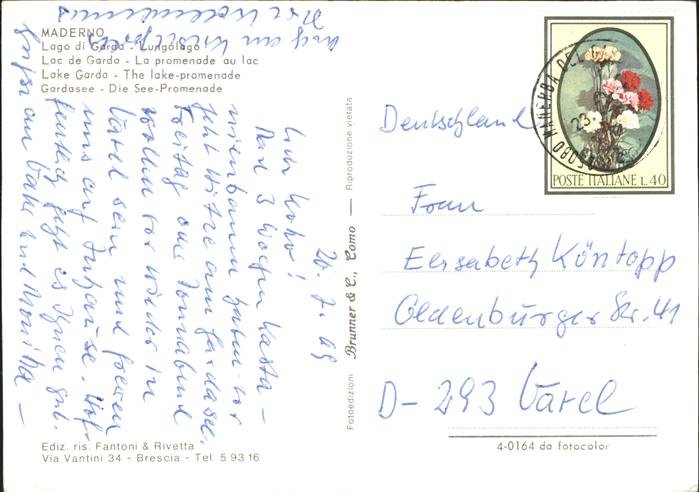 MADERNO
Lago di Garda - Lungolago
Lac de Garda - La promenade au lac
Lake Garda - The lake-promenade
Gardasee - Die See-Promenade
20. 7. 69
Nach 3 Wochen
haben wir
jetzt Hitze am Gardasee.
Freitag oder Sonnabend
wollen wir wieder in
Varel sein und freuen
uns auf Zuhause. Hof-
fentlich geht es Ihnen gut.
und Monika -
Ediz. ris. Fantoni & Rivetta
Via Vantini 34 - Brescia - Tel. 5 93 16
Fotoedizioni Brunner & C., Como — Riproduzione vietata
POSTE ITALIANE L. 40
MANERBA DEL
Deutschland
Frau
Elisabeth Köntopp
Oldenburger Str. 41
D-293 Varel
4-0164 da fotocolor